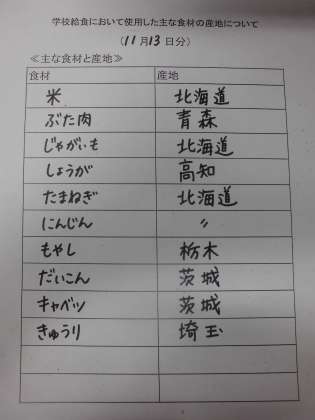 学校給食において使用した主な食材の産地について
(11月13日分)
≪主な食材と産地≫
食材 産地
米 北海道
ぶた肉 青森
じゃがいも 北海道
しょうが 高知
たまねぎ 北海道
にんじん 〃
もやし 栃木
だいこん 茨城
キャベツ 茨城
きゅうり 埼玉